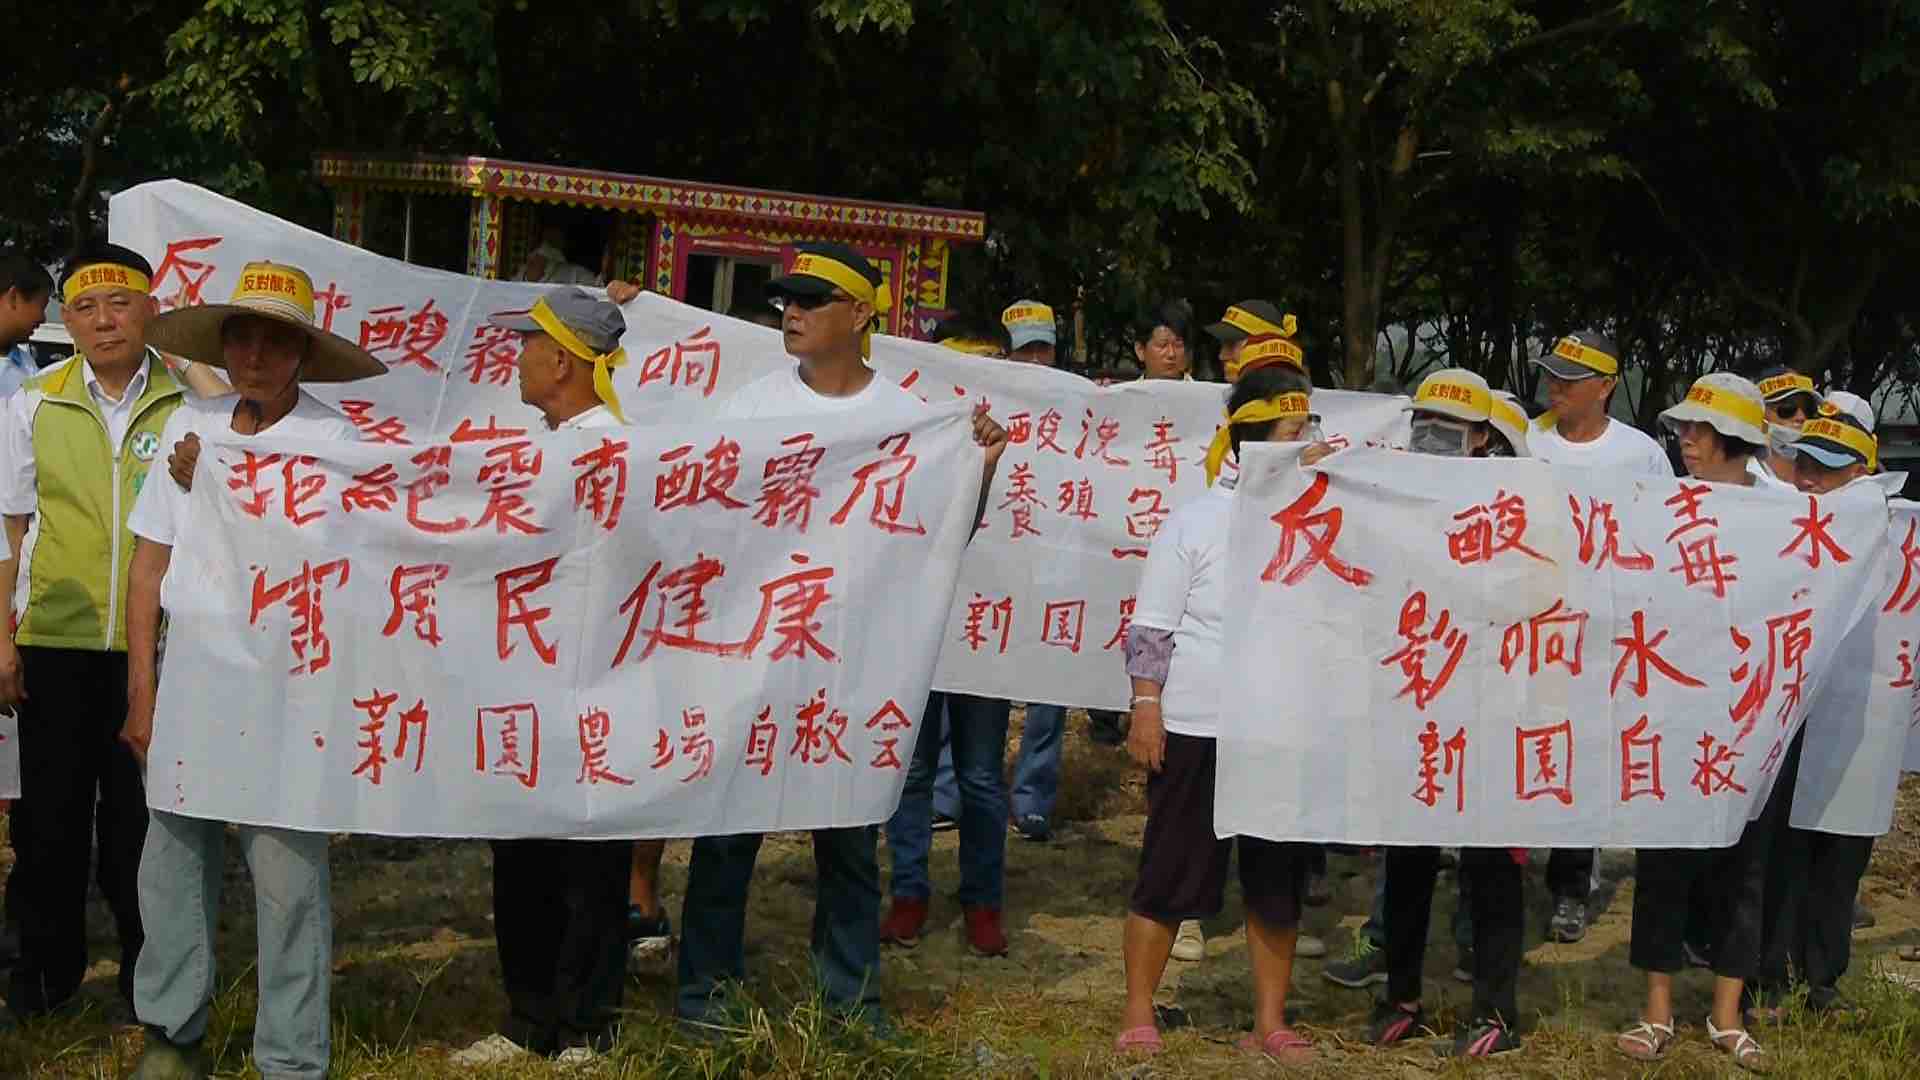 反對酸洗
反對酸洗
酸霧
响
拒絕震南酸霧危
害居民健康
新園農場自救会
酸洗毒
養殖魚
新園農
反酸洗毒水
影响水源
新園自救
反對酸洗
反對酸洗